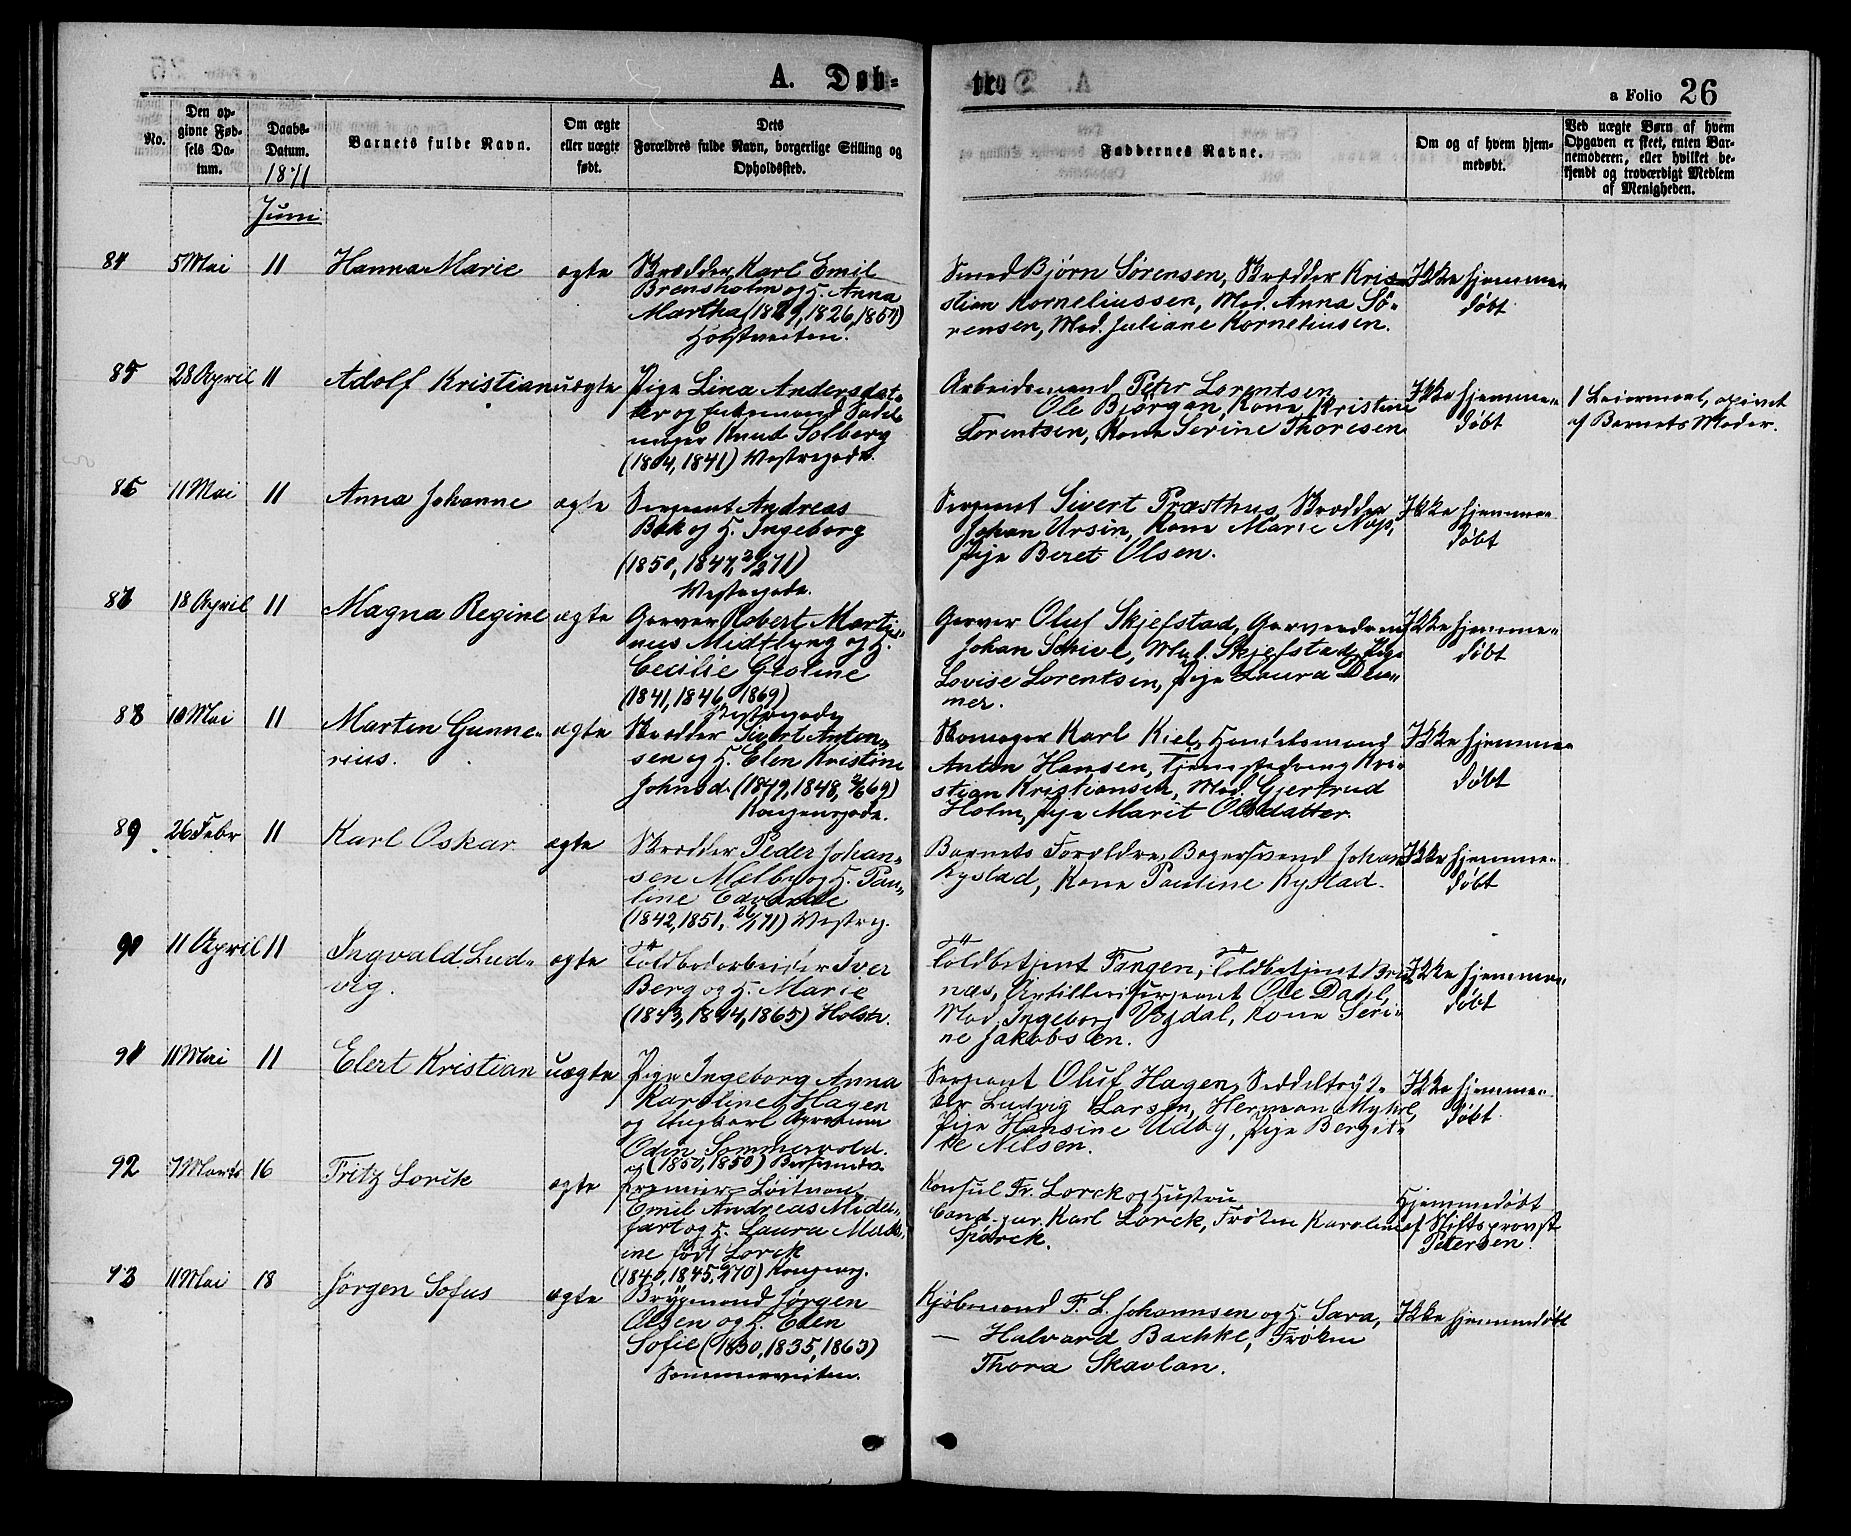 A. Døb-
bte
a Folio 26
No.
Den op-
givne Fød-
sels Da-
tum.
Daabs-
Datum.
1871
Barnets fulde Navn.
Om ægte
eller uægte
født.
Dets
Forældres fulde Navn, borgerlige Stilling og
Opholdssted.
Faddernes Navne.
Om og af hvem hjem-
medøbt.
Ved uægte Børn af hvem
Opgaven er skeet, enten Bar-
nemoderen, eller hvilket be-
kjendt og troværdigt Medlem
af Menigheden.
Juni
84 5 Mai 11 Hanna Marie ægte
Skrædder Karl Emil
Brensholm og H. Anna
Martha
Smed Bjørn Sørensen, Skrædder Kri-
stian Korneliussen, Mad. Anna Sö-
rensen, Mad. Juliane Korneliusen.
Ikke hjemme-
døbt
85 28 April 11 Adolf Kristian uægte
Pige Lina Andersdat-
ter og Enkemand Sadel
mager Knud Solberg
(1841) Vestregade.
Arbeidsmand Peter Lorentsen
Ole Bjørgan, Kone Kristine
Lorentsen, Kone Serine Thoresen
Ikke hjemme-
døbt
1 Leiermaal, opgivet
af Barnets Moder.
86 11 Mai 11 Anna Johanne ægte
Sergeant Andreas
Bak og H. Ingeborg
(1850, 1847, 71)
Vestregade.
Sergeant Sivert Præsthus, Skrædder
Johan Ursin, Kone Marie
Pige Beret Olsen.
Ikke hjemme-
døbt
87 18 April 11 Magna Regine ægte
Garver Robert Marti-
nus Midtlyng og H.
Cecilie Gesine
(1841, 1846, 1869)
Vestregade
Garver Oluf Skjefstad, Garversvend
Johan Schive, Mad. Skjefstad, Pige
Lovise Lorentsen, Pige Laura
mer.
Ikke hjemme-
døbt
88 10 Mai 11 Marten Gunne-
rius. ægte
Skrædder Sivert Anton-
sen og H. Elen Kristine
Johnsd. (1849, 1848, 69)
Kongensgade.
Skomager Karl Kiel, Handelsmand
Anton Hansen, Tjenestedreng Kri-
stian Kristiansen, Mad. Gjertrud
Holm, Pige Marit Olsdatter.
Ikke hjemme-
døbt
89 26 Febr 11 Karl Oskar ægte
Skrædder Peder Johan-
sen Melby og H. Pau-
line
(1842, 1851, 71) Vestreg.
Barnets Forældre, Bagersvend Johan
Kystad, Kone Pauline Kystad.
Ikke hjemme-
døbt
90 11 April 11 Ingvald Lud-
vig. ægte
Toldbodarbeider Iver
Berg og H. Marie
(1843, 1844, 1865)
Toldbetjent Fangen, Toldbetjent
næs, Artillerisergeant Ole Dahl,
Mad. Ingeborg, Kone Seri-
ne Jakobsen.
Ikke hjemme-
døbt
91 11 Mai 11 Elert Kristian uægte
Pige Ingeborg Anna
Karoline Hagen
og Ungkarl
Oden Sommervold.
(1850, 1850)
Sergeant Oluf Hagen, Seddeltryk-
ker Ludvig Larsen, Herman Myhre,
Pige Hansine Udby, Pige Bergit-
te Nilsen.
Ikke hjemme-
døbt
92 7 Marts 16 Fritz Lorck ægte
Premier-Løitnant
Emil Andreas Midel-
fart og H. Laura
ine født Lorck
(1840, 1845, 70) Kongensg.
Konsul Fr. Lorck og Hustru
Cand. jur. Karl Lorck, Frøken Karoline
Spørck.
Hjemmedøbt
af Stiftsprovst
Petersen.
93 11 Mai 18 Jørgen Sofus ægte
Brygmand Jørgen
Olsen og H. Elen
Sofie (1830, 1835, 1863)
Sommerveiten.
Kjøbmand F. L. Johannsen og H. Sara,
— Halvard Bachke, Frøken
Thora Skavlan.
Ikke hjemmedøbt